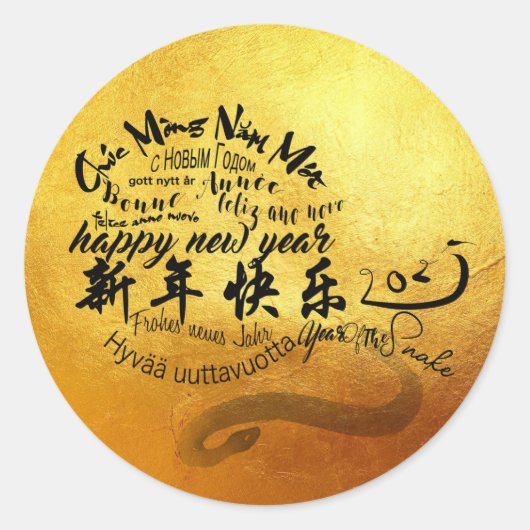 Chúc Mừng Năm Mới
с Новым Годом
gott nytt år
Bonne Année
feliz ano novo
felice anno nuovo
happy new year
新年快乐
2025
Frohes neues Jahr
Year Of The Snake
Hyvää uuttavuotta